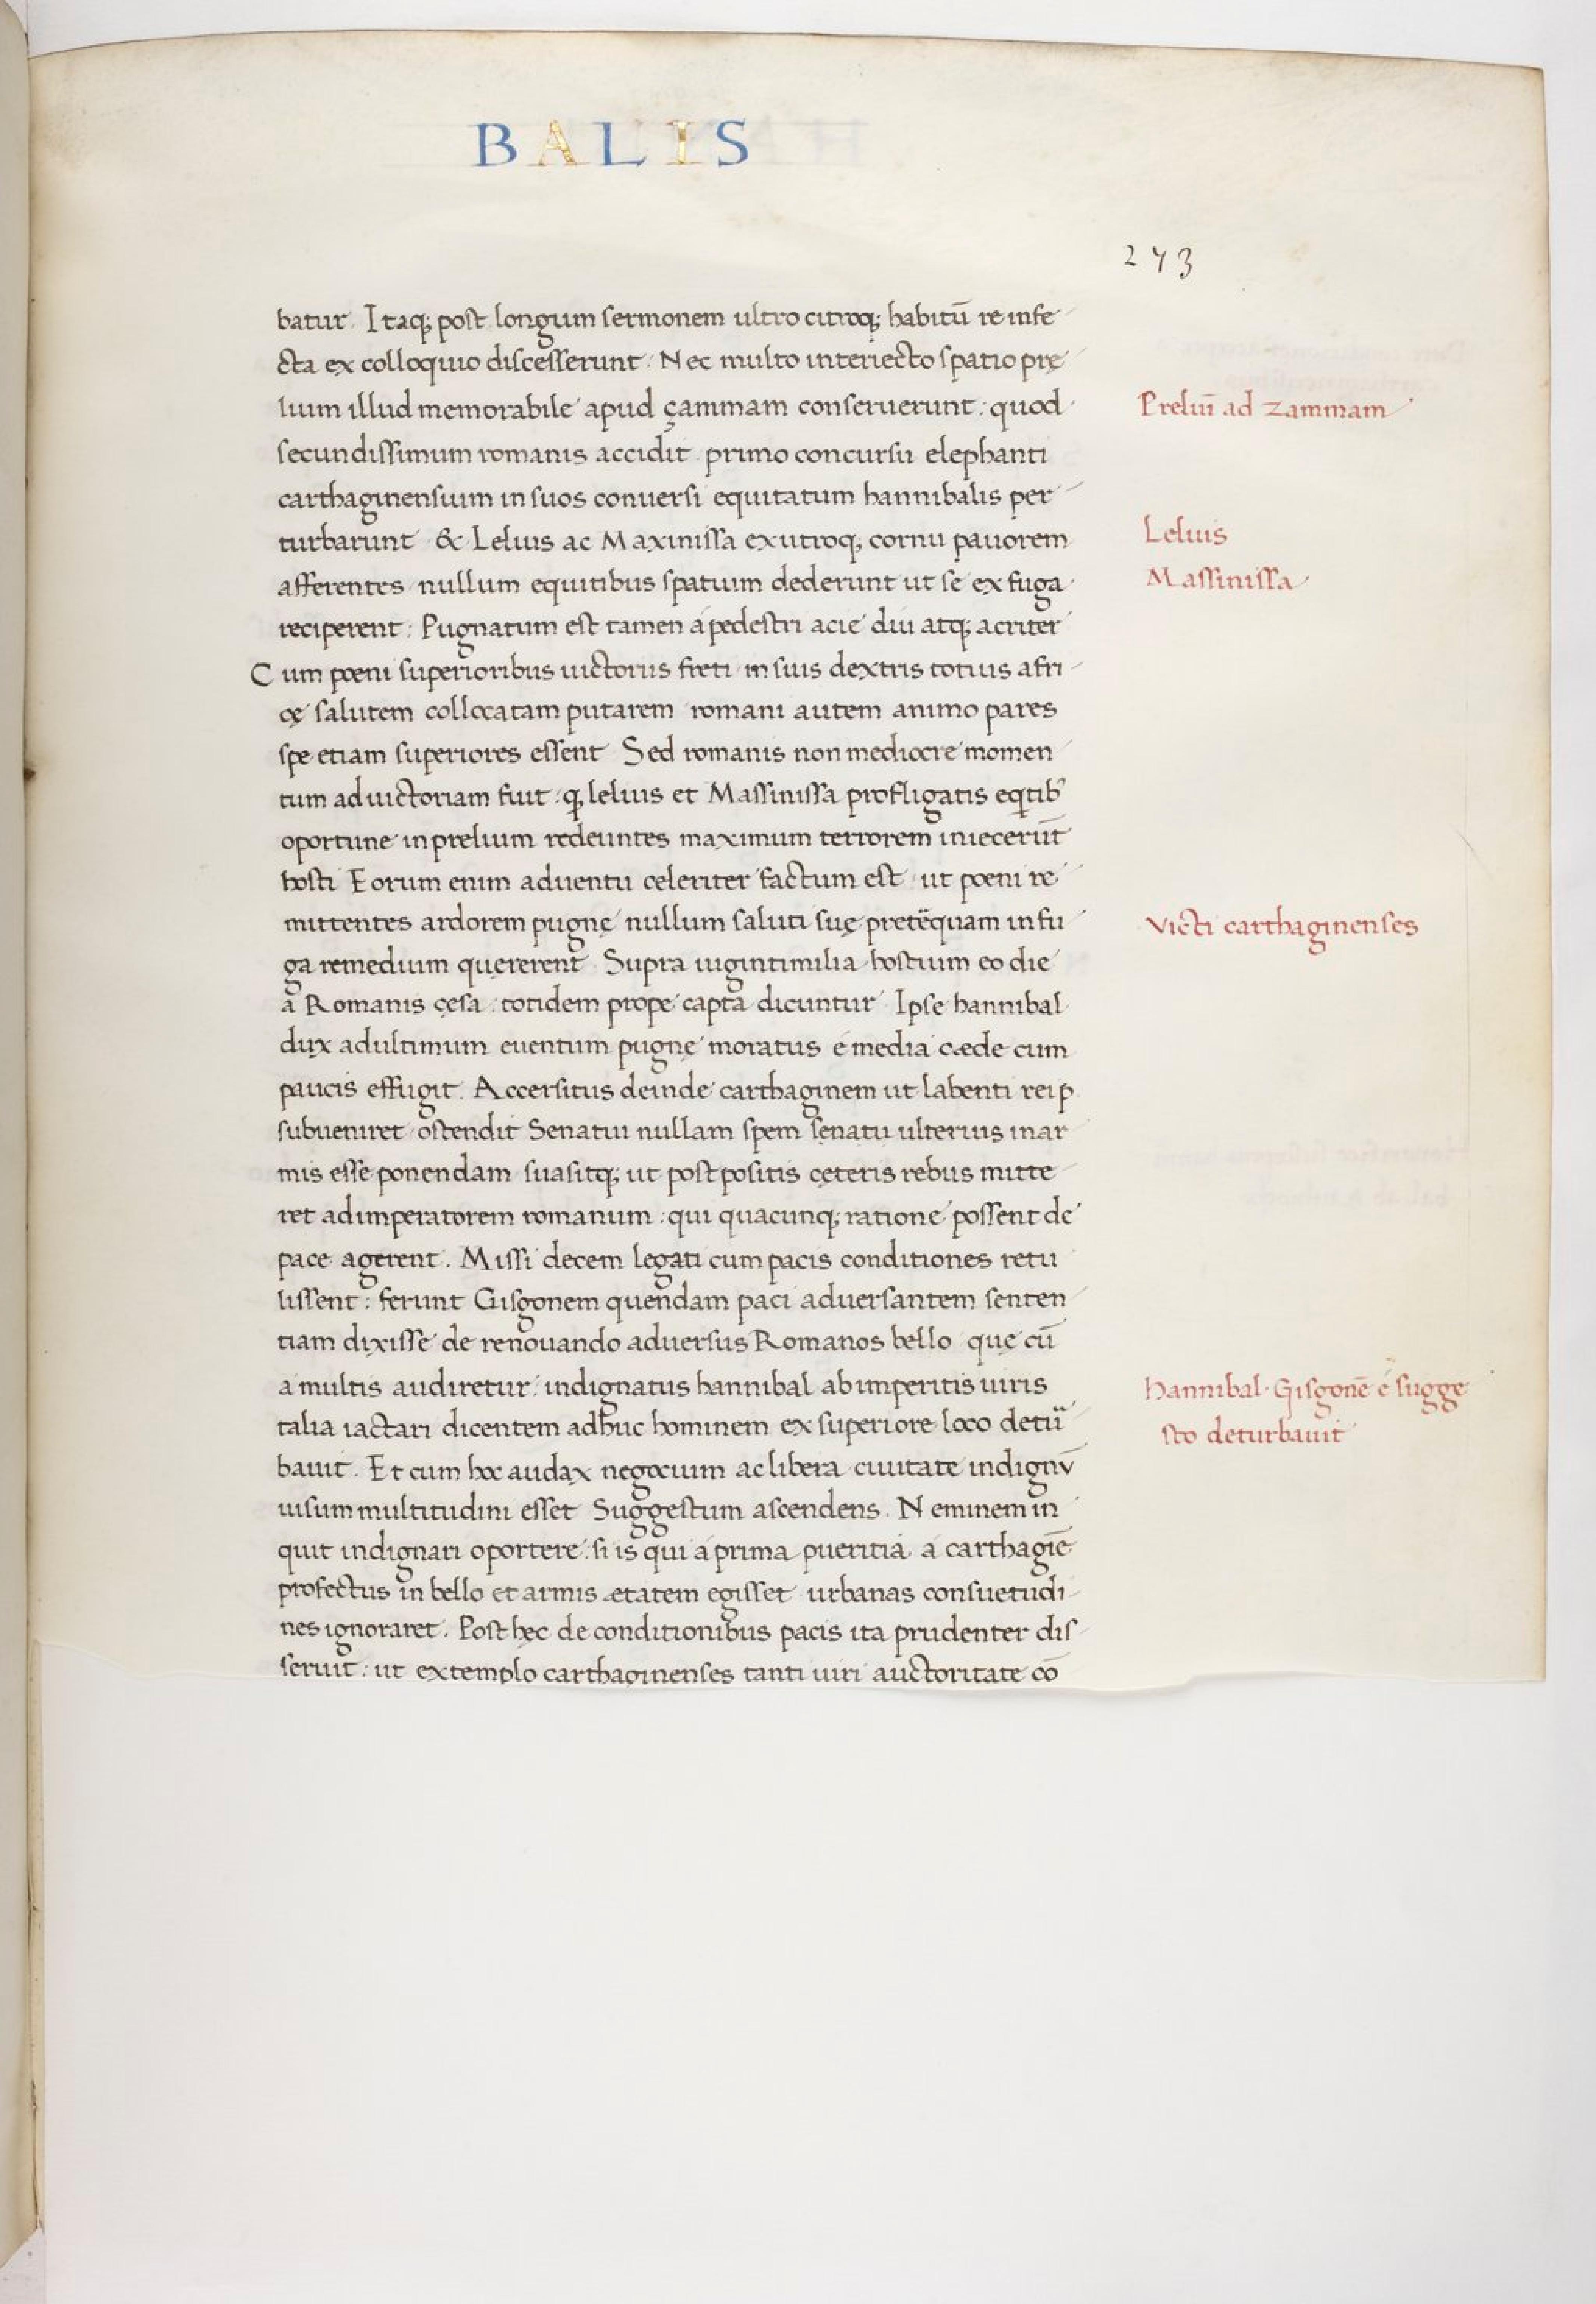 BALIS
273
batur. Itaq; post longum sermonem ultro citroq; habitū re infe
cta ex colloquio discesserunt. Nec multo interiecto spatio prę
lium illud memorabile apud çammam conseruerunt: quod
Preliū ad zammam
secundissimum romanis accidit primo concursu elephanti
carthaginensium in suos conuersi equitatum hannibalis per
turbarunt & Lelius ac Maxinissa ex utroq; cornu pauorem
Lelius
afferentes nullum equitibus spatium dederunt ut se ex fuga
Massinissa
reciperent: Pugnatum est tamen a pedestri acie diu atq; acriter
Cum poeni superioribus uictoriis freti in suis dextris totius afri
cę salutem collocatam putarem romani autem animo pares
spe etiam superiores essent Sed romanis non mediocre momen
tum ad uictoriam fuit: q lelius et Massinissa profligatis eqtib'
oportune in prelium redeuntes maximum terrorem iniecerūt
hosti Eorum enim aduentu celeriter factum est ut poeni re
mittentes ardorem pugnę nullum saluti suę pretequam in fu
Victi carthaginenses
ga remedium quęrerent Supra uigintimilia hostium eo die
a Romanis cęsa totidem prope capta dicuntur Ipse hannibal
dux ad ultimum euentum pugnę moratus e media cæde cum
paucis effugit. Accersitus deinde carthaginem ut labenti rei p
subueniret ostendit Senatui nullam spem senatu ulterius in ar
mis esse ponendam suasitq; ut post positis cęteris rebus mitte
ret ad imperatorem romanum: qui quacunq; ratione possent de
pace agerent. Missi decem legati cum pacis conditiones retu
lissent: ferunt Gisgonem quendam paci aduersantem senten
tiam dixisse de renouando aduersus Romanos bello quę cū
a multis audiretur: indignatus hannibal ab imperitis uiris
hannibal Gisgonē e sugge
talia iactari dicentem adhuc hominem ex superiore loco detu
sto deturbauit
bauit. Et cum hoc audax negocium ac libera ciuitate indignū
uisum multitudini esset Suggestum ascendens. Neminem in
quit indignari oportere: si is qui a prima pueritia a carthagiē
profectus in bello et armis ætatem egisset urbanas consuetudi
nes ignoraret. Post hęc de conditionibus pacis ita prudenter dis
seruit: ut extemplo carthaginenses tanti uiri auctoritate cō